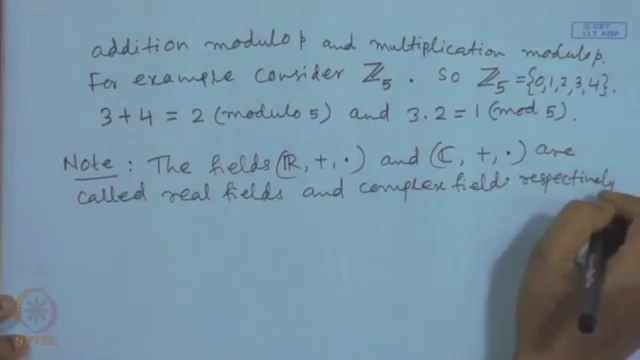 © CET
I.I.T. KGP
addition modulo p and multiplication modulo p.
For example consider ℤ₅. So ℤ₅ = {0,1,2,3,4}.
3 + 4 = 2 (modulo 5) and 3.2 = 1 (mod 5).
Note : The fields (ℝ, +, ·) and (ℂ, +, ·) are
called real fields and complex field respectively
NPTEL